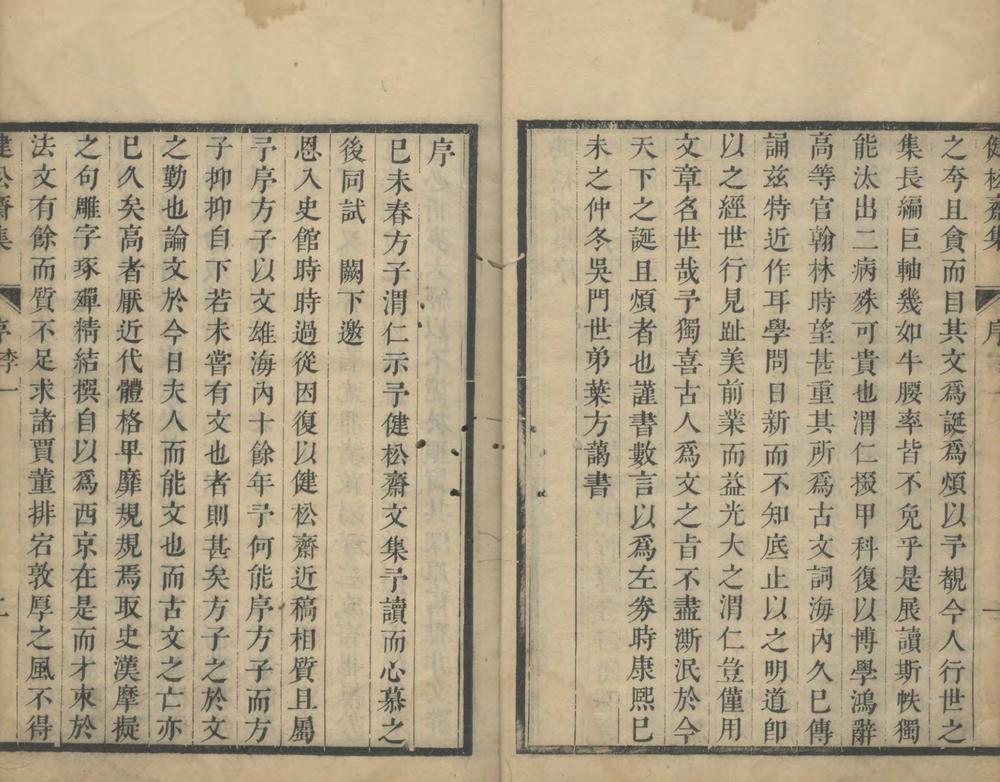 健松齋集
序
一
之夸且貪而目其文爲誕爲煩以予覩今人行世之
集長編巨軸幾如牛腰率皆不免乎是展讀斯帙獨
能汰出二病殊可貴也渭仁掇甲科復以博學鴻辭
高等官翰林時望甚重其所爲古文詞海內久已傳
誦兹特近作耳學問日新而不知底止以之明道卽
以之經世行見趾美前業而益光大之渭仁豈僅用
文章名世哉予獨喜古人爲文之㫖不盡澌泯於今
天下之誕且煩者也謹書數言以爲左劵時康熙已
未之仲冬吳門世弟葉方藹書
序
已未春方子渭仁示予健松齋文集予讀而心慕之
後同試 闕下邀
恩入史館時時過從因復以健松齋近稿相質且屬
予序方子以文雄海內十餘年予何能序方子而方
子抑抑自下若未嘗有文也者則甚矣方子之於文
之勤也論文於今日夫人而能文也而古文之亡亦
已久矣高者厭近代體格卑靡規規焉取史漢摩擬
之句雕字琢殫精結撰自以爲西京在是而才束於
法文有餘而質不足求諸賈董排宕敦厚之風不得
建松齋集
序李一
二